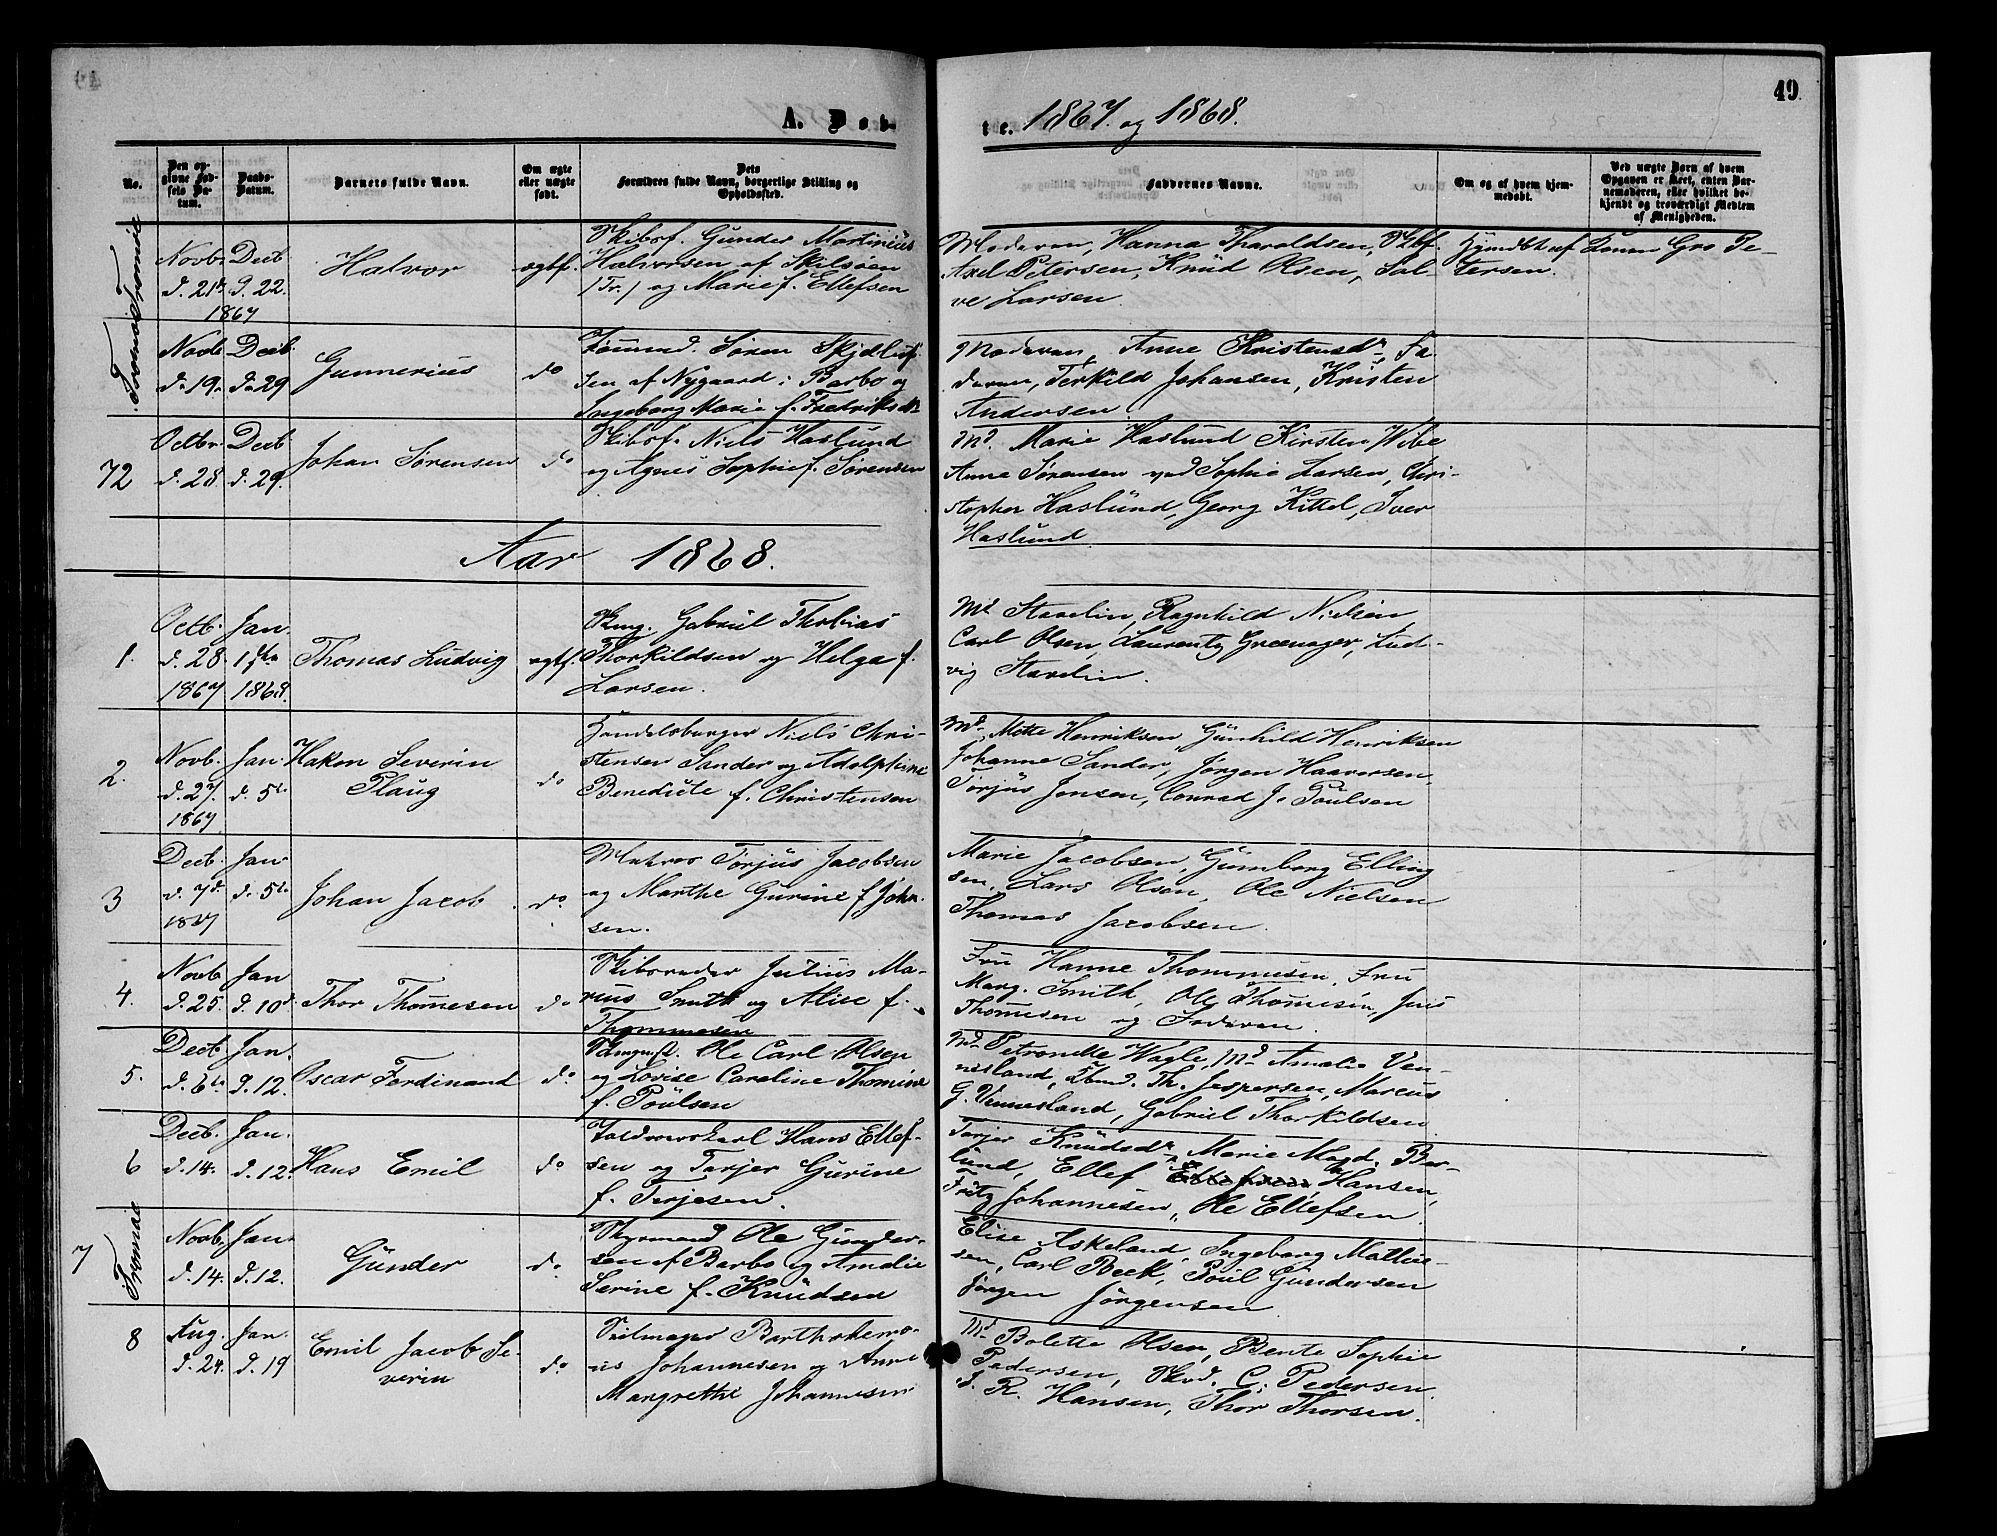 49
A. Døb-
te. 1867. og 1868.
No.
Den op-
givne Fød-
sels Da-
tum.
Daabs-
Datum.
Barnets fulde Navn.
Om ægte
eller uægte
født.
Dets
Forældres fulde Navn, borgerlige Stilling og
Opholdssted.
Faddernes Navne.
Om og af hvem hjem-
medøbt.
Ved uægte Børn af hvem
Opgaven er skeet, enten Bar-
nemoderen, eller hvilket be-
kjendt og troværdigt Medlem
af Menigheden.
Tromøe
Novb. d. 21de 1867
Decb. d. 22.
Halvor
ægtf.
Skibsf. Gunder Martinius
Halvorsen af Skilsøen
/Tr./ og Marie f. Ellefsen
Moderen, Hanna Tharaldsen, Skbf.
Axel Petersen, Knud Olsen, Sal-
ve Larsen.
Hjemdbt af Konen Gro Pe-
tersen.
Tromøe
Novb. d. 19.
Decb. d. 29
Gunnerius
do
Tømmd. Søren Skjellef-
sen af Nygaard i Barbo og
Ingeborg Marie f. Fredriksdr
Moderen, Anne Kristensdr, Fa-
deren, Terkild Johansen, Kristen
Andersen
72
Octbr. d. 28.
Decb. d. 29.
Johan Sørensen
do
Skibsf. Niels Haslund
og Agnes Sophie f. Sørensen
Md. Marie Haslund Kirsten Wibe
Anna Sørensen ved Sophie Larsen, Chri-
stopher Haslund, Georg Kittel, Iver
Haslund
Aar 1868.
1.
Octb. d. 28. 1867
Jan. 1ste 1868.
Thomas Ludvig
ægtf.
Skmg. Gabriel Thobias
Thorkildsen og Helga f.
Larsen.
Md Stavelin, Ragnhild Nielsen
Carl Olsen, Laurentz Greenager, Lud-
vig Stavelin.
2.
Novb. d. 27. 1867
Jan. d. 5te
Hakon Severin
Plaug
do
Handelsborger Niels Chri-
stensen Sander og Adolphine
Benedicte f. Christensen
Md. Mette Henriksen, Gunhild Henriksen
Johanne Sander, Jørgen Haaversen,
Torjus Jensen, Conrad J. Poulsen
3
Decb. d. 7d. 1867
Jan d. 5te
Johan Jacob
do.
Matros Torjus Jacobsen
og Marthe Gurine f. Johan-
sen.
Marie Jacobsen, Gunborg Elling
sen, Lars Olsen, Ole Nielsen
Thomas Jacobsen.
4.
Novb d. 25.
Jan d. 10d
Thor Thommesen
do
Skibsreder Julius Ma-
rius Smith og Alise f.
Thommesen
Fru Hanne Thommesen, Fru
Marg. Smith, Ole Thommesen, Jens
Thommesen og Faderen.
5.
Decb d. 6te
Jan. d. 12.
Oscar Ferdinand
do.
Skmgust. Ole Carl Olsen
og Lovise Caroline Thomine
f. Poulsen
Md Petronelle Wagle, Md Amalie Ven-
nesland, Tbmd. Th. Jespersen, Marcus
G. Vennesland, Gabriel Thorkildsen
6
Decb. d. 14.
Jan. d. 12.
Hans Emil
do
Toldroerskarl Hans Ellef-
sen og Torjer Gurine
f. Terjesen.
Torjer Knudsdr, Marie Magd. Ber-
lund, Ellef Hansen,
Fritz Johannesen, Ole Ellefsen.
7
Tromøe
Novb. d. 14.
Jan. d. 12.
Gunder
do.
Styrmand Ole Gunder-
sen af Barbo og Amalie
Serine f. Knudsen
Elise Askeland, Ingeborg Mathie-
sen, Carl Beck, Poul Gundersen
Jørgen Jørgensen
8
Aug. d. 24.
Jan. d. 19
Emil Jacob Se-
verin
do.
Seilmager Bartholemæ-
us Johannesen og Anne
Margrethe Johannesen
Md. Bolette Olsen, Bente Sophie
Pedersen, Skrd. C. Pedersen.
S. R. Hansen, Thor Thorsen.